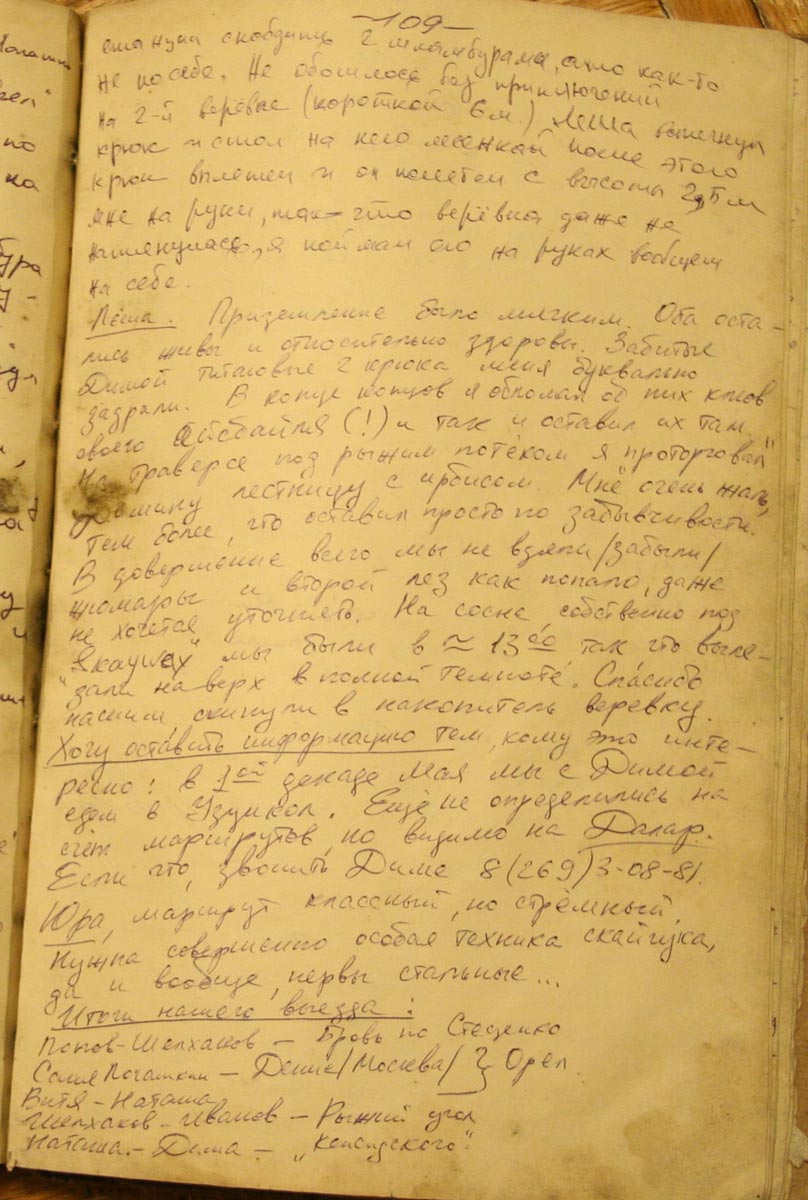 -109-
станции снабдить 2 шлямбурами, а то как-то
не по себе. Не обошлось без приключений
на 2-й верёвке (короткой 6 м.) Леша вытянул
крюк и стал на него лесенкой после этого
крюк вылетел и он полетел с высоты 2,5 м
мне на руки, так-что верёвка даже не
натянулась, я поймал его на руках вообщем
на себе.
Лёша. Приземление было мягким. Оба оста-
лись живы и относительно здоровы. Забитые
Димой титановые 2 крюка меня буквально
задрали. В конце концов я обломал об них клюв
своего айсбайля (!) и так и оставил их там.
На траверсе под рыжим потёком я "проторговал"
лестницу с ирбисом. Мне очень жаль,
тем более, что оставил просто по забывчивости.
В довершение всего мы не взяли /забыли/
жюмары и второй лез как попало, даже
не хочется уточнять. На сосне, собственно под
"Якауцех" мы были в ≈ 13⁰⁰ так что выле-
зали на верх в полной темноте. Спасибо
нашим, скинули в накопитель веревку.
Хочу оставить информацию тем, кому это инте-
ресно: в 1ой декаде Мая мы с Димой
едем в Узункол. Ещё не определились на
счёт маршрутов, но видимо на Далар.
Если что, звонить Диме 8(269)3-08-81.
Юра, маршрут классный, но стрёмный.
Нужна совершенно особая техника скайхука,
да и вообще, нервы стальные...
Итоги нашего выезда:
Попов-Шелхаков - Бровь по Стеценко
Саня Логашкин - Денис /Москва/ } Орел
Витя - Наташа
Шелхаков - Иванов - Рыжий угол
Наташа - Дима -